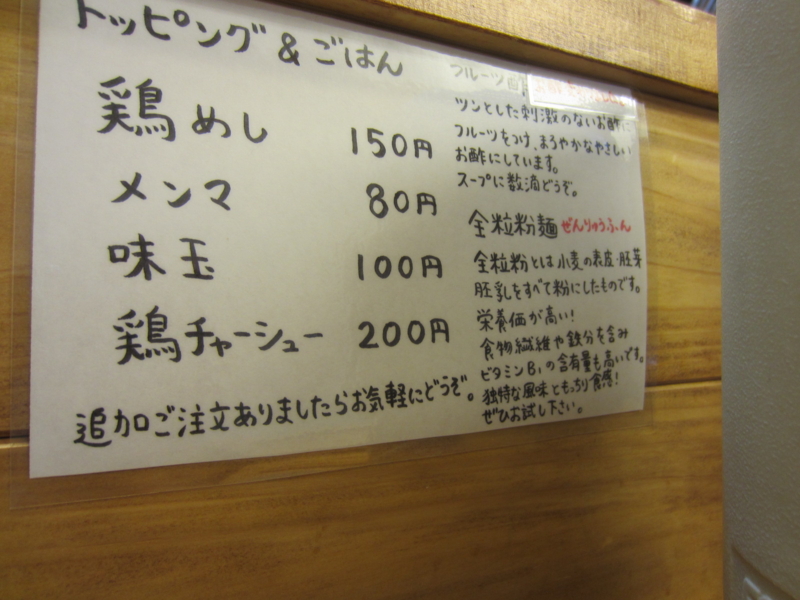 トッピング&ごはん
鶏めし 150円
メンマ 80円
味玉 100円
鶏チャーシュー 200円
追加ご注文ありましたらお気軽にどうぞ。
フルーツ酢
ツンとした刺激のないお酢に
フルーツをつけ、まろやかなやさしい
お酢にしています。
スープに数滴どうぞ。
全粒粉麺 ぜんりゅうふん
全粒粉とは小麦の表皮・胚芽
胚乳をすべて粉にしたものです。
栄養価が高い!
食物繊維や鉄分を含み
ビタミンB1の含有量も高いです。
独特な風味ともっちり食感!
ぜひお試し下さい。